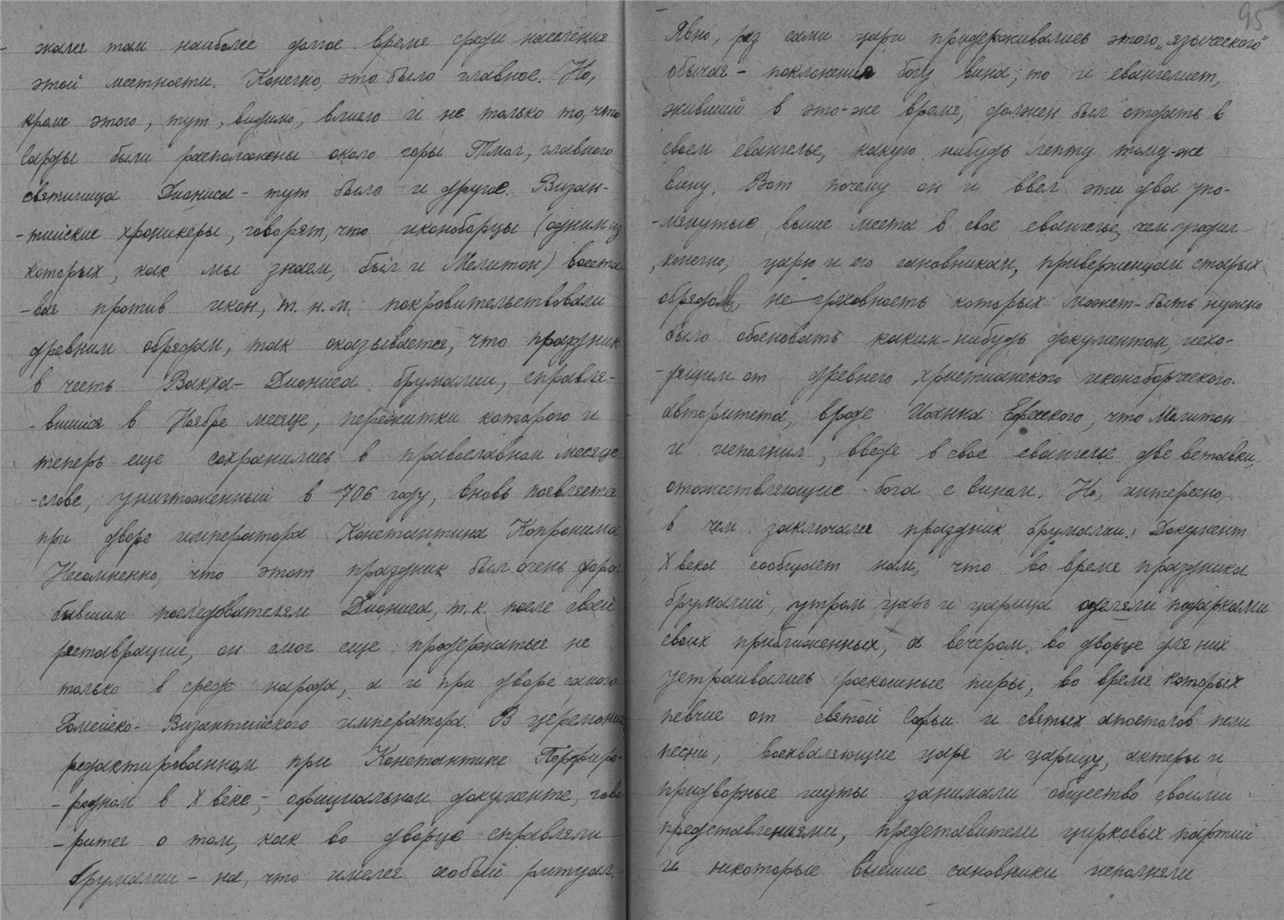 -жалась там наиболее долгое время среди населения
этой местности. Конечно, это было главное. Но,
кроме этого, тут, видимо, влияло и не только то, что
Сарды были расположены около горы Тмол, главного
святилища Диониса - тут было и другое. Визан-
-тийские хроникеры, говорят, что иконоборцы (одним из
которых, как мы знаем, был и Мелитон) восста-
-вая против икон, т.н.м. покровительствовали
древним обрядам, так оказывается, что праздник
в честь Вакха - Диониса брумалии, справля-
-вшийся в Ноябре месяце, пережитки которого и
теперь еще сохранились в православном месяце-
-слове, уничтоженный в 706 году, вновь появляется
при дворе императора Константина Копронима
Несомненно, что этот праздник был очень дорог
бывшим последователям Диониса, т.к. после своей
реставрации, он смог еще продержаться не
только в среде народа, а и при дворе самого
Ромейско-Византийского императора. В церемони
редактированном при Константине Порфиро-
-родном в X веке, - официальном документе, гово
-рится о том, как во дворце справляли
брумалии - на, что имелся особый ритуал.
95
Явно, раз сами цари придерживались этого „языческого"
обычая - поклонения богу вина; то и евангелист,
живший в это-же время, должен был отдать в
своем евангелье, какую нибудь лепту тому-же
вину. Вот почему он и ввел эти два упо-
-мянутые выше места в свое евангелье, чем угодил
, конечно, царю и его сановникам, приверженцам старых
обрядов, не греховность которых может-быть нужно
было обосновать каким-нибудь документом, исхо-
-дящим от древнего христианского иконоборческого.
авторитета, вроде Иоанна Ефесского, что Мелитон
и исполнил, введя в свое евангелье две вставки,
отожествляющие бога с вином. Но, интересно
в чем заключался праздник брумалии. Документ
X века сообщает нам, что во время праздника
брумалий, утром царь и царица оделяли подарками
своих приближенных, а вечером во дворце для них
устраивались роскошные пиры, во время которых
певчие от святой Софьи и святых апостолов пели
песни, восхваляющие царя и царицу, актеры и
придворные шуты занимали общество своими
представлениями, представители цирковых партий
и некоторые высшие сановники исполняли